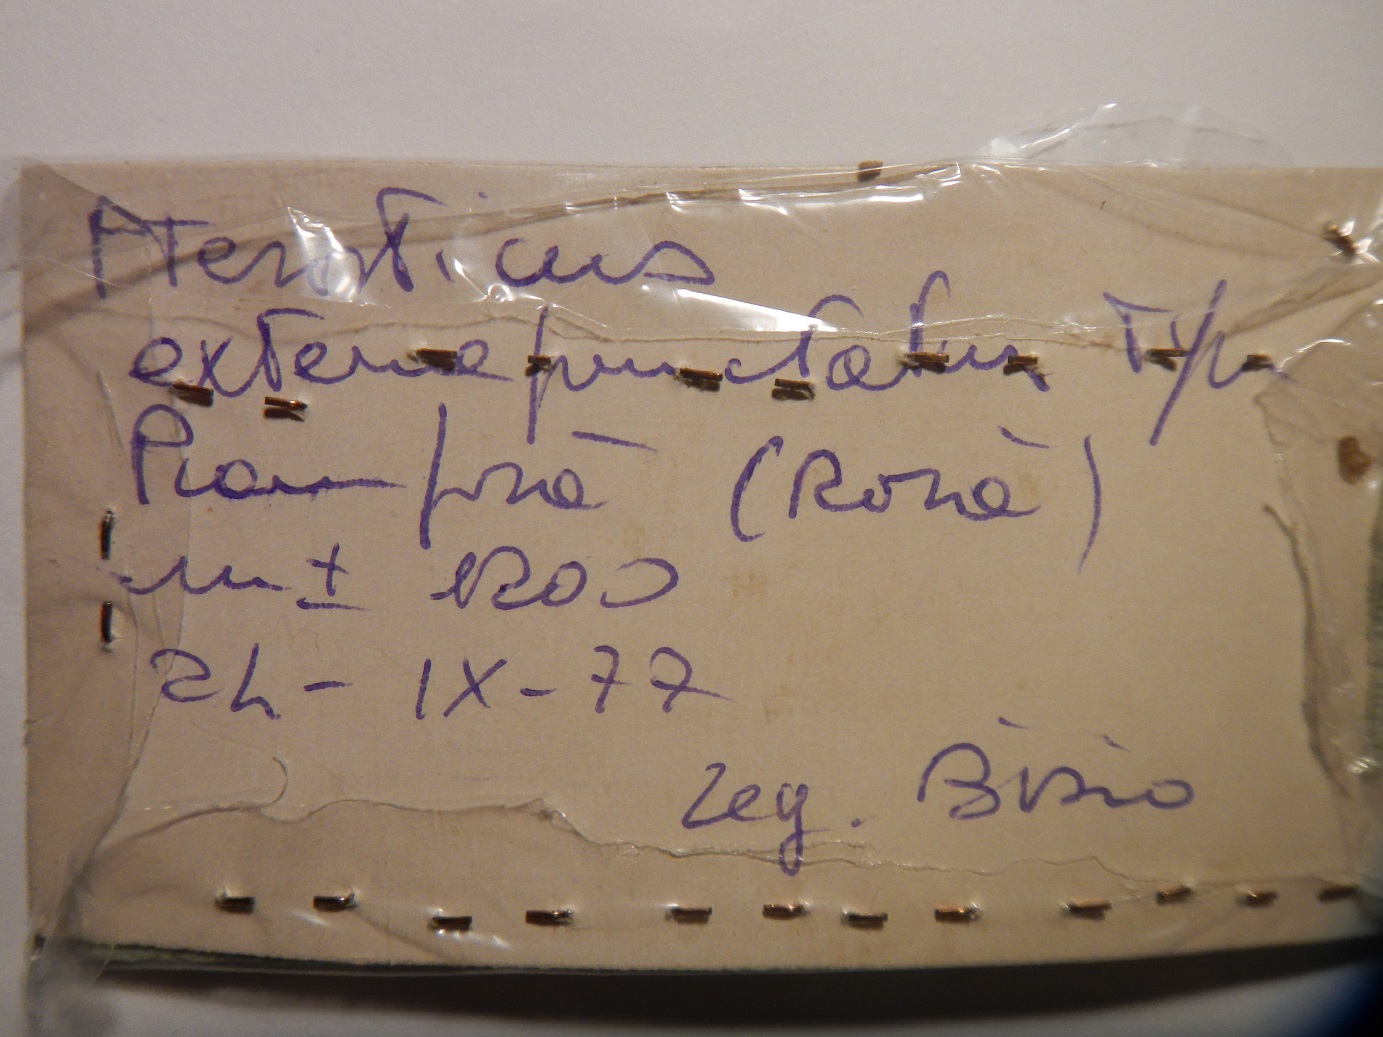 Pterosticus
externepunctatus Typ.
Pian prà (Rorà)
m ± 1200
24-IX-77
Leg. Bisio